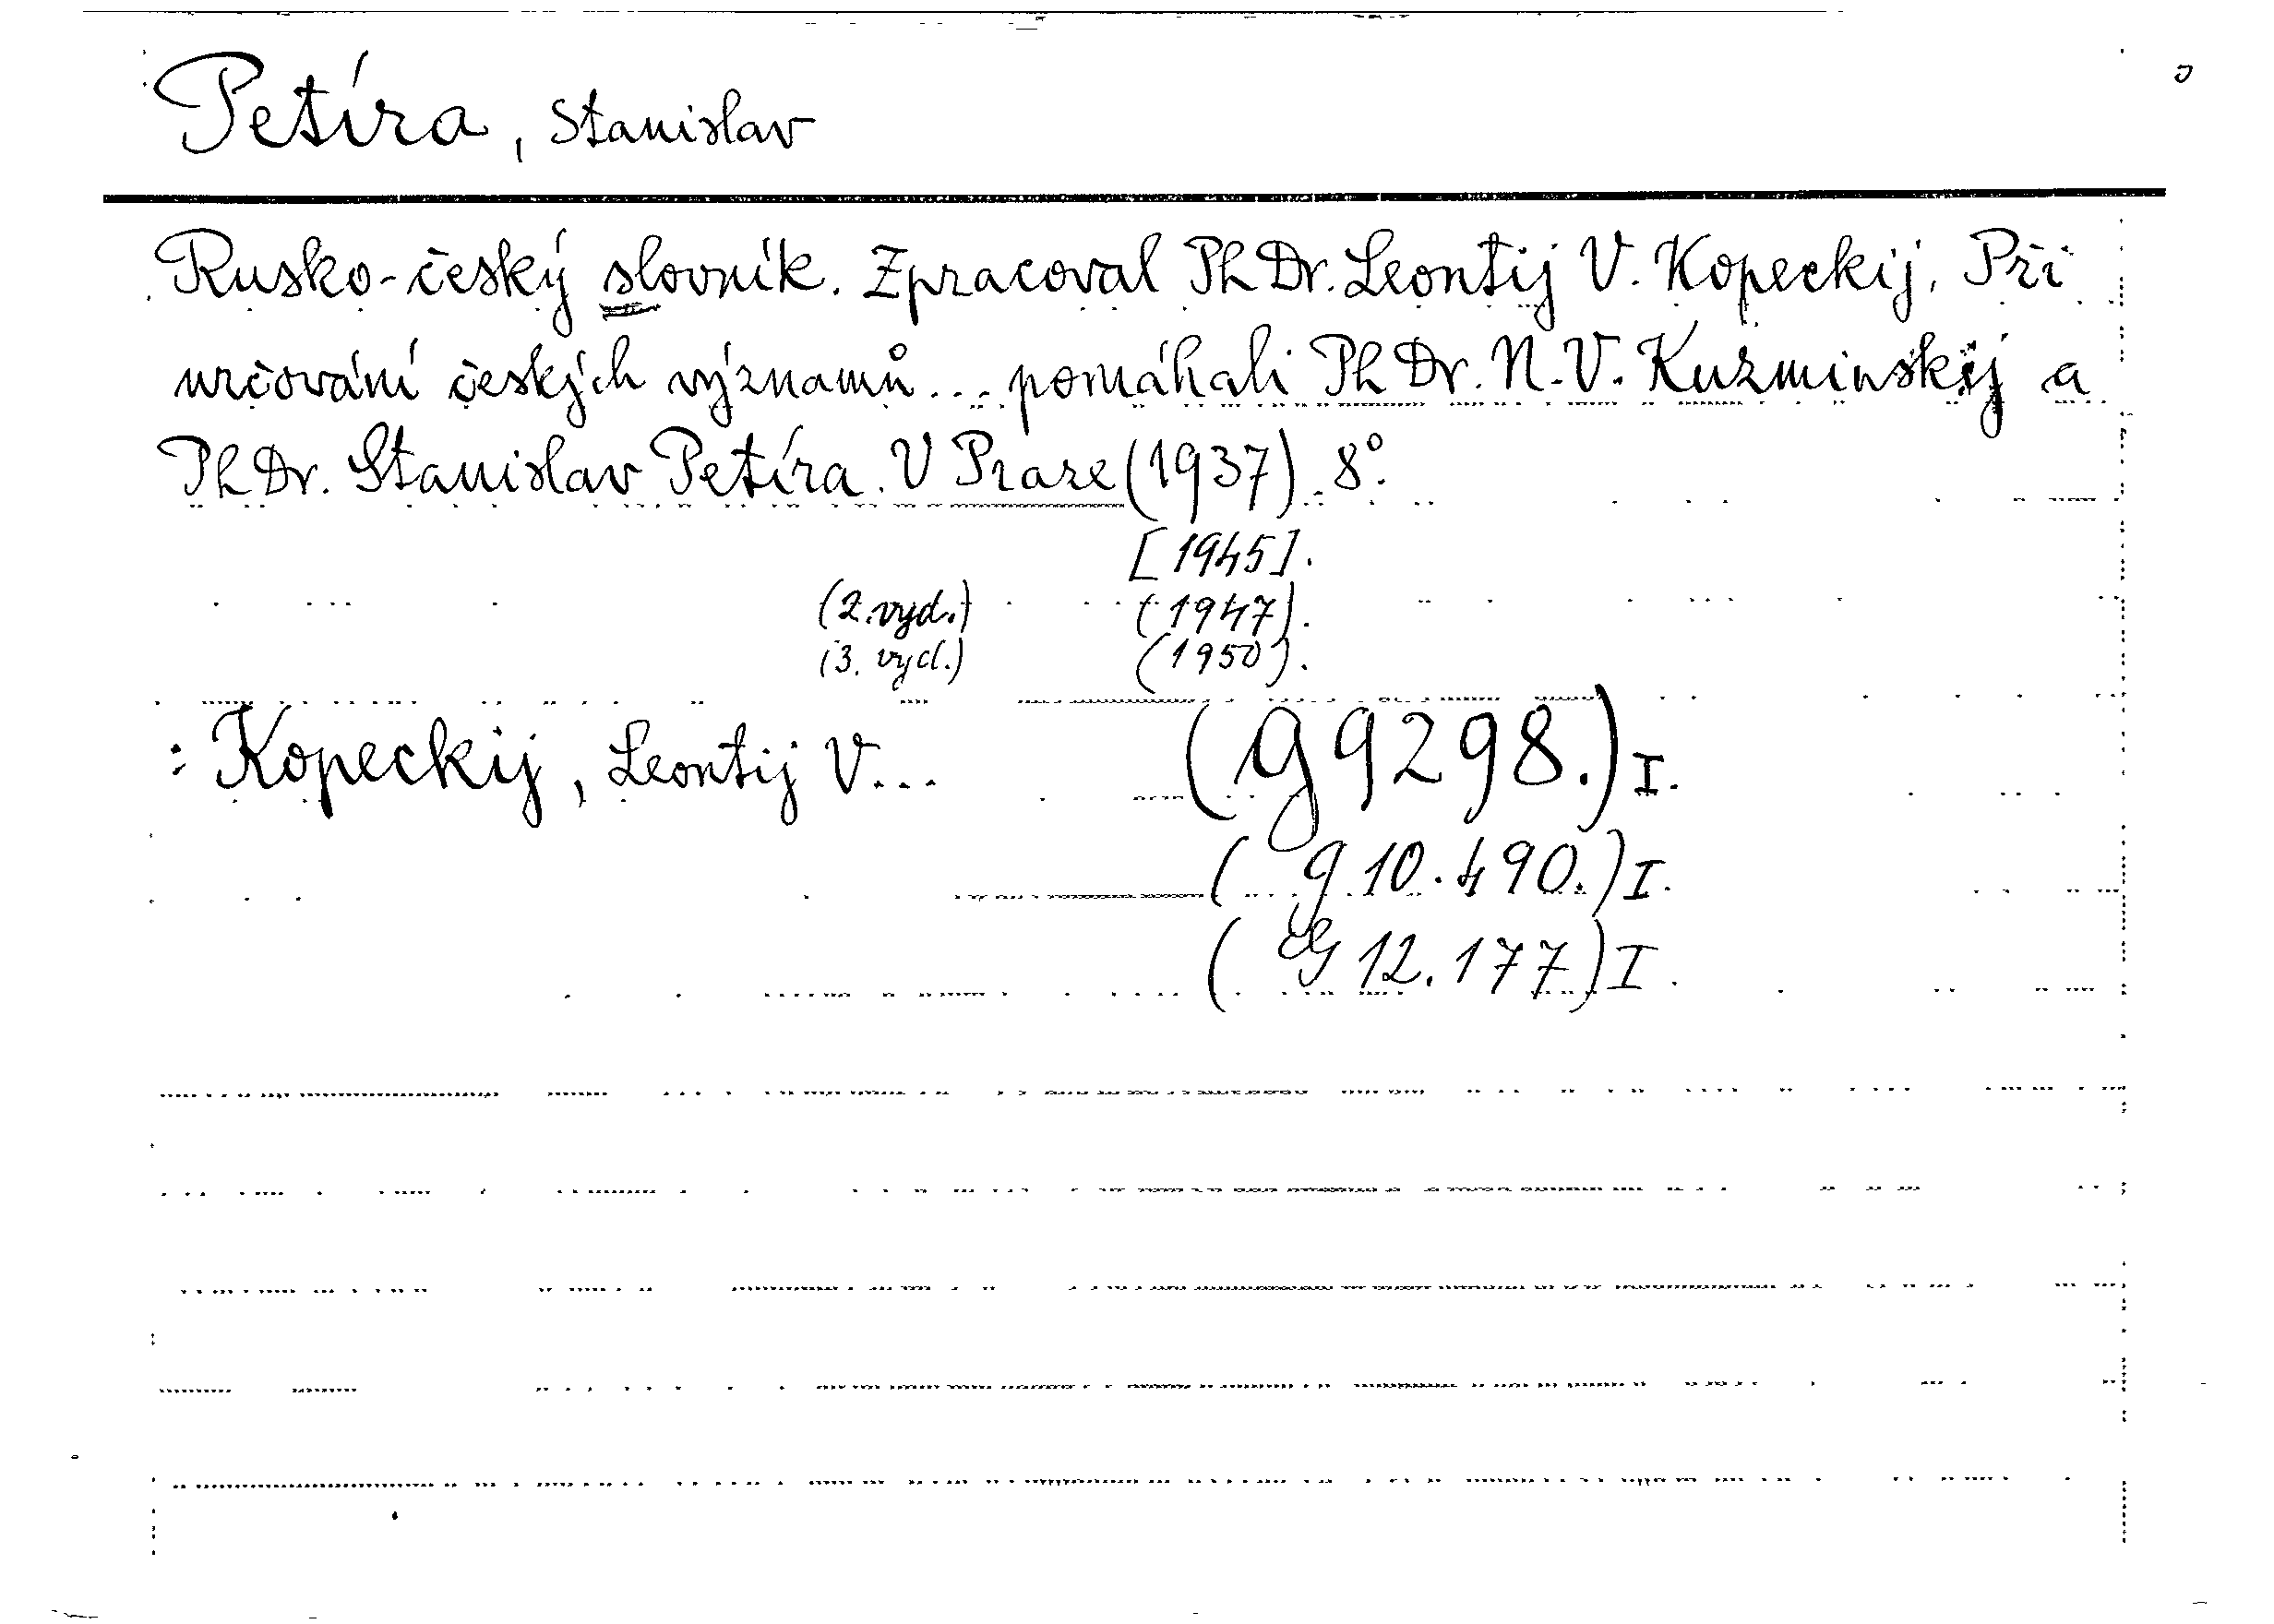 Petíra, Stanislav
Rusko-český slovník. Zpracoval PhDr. Leontij V. Kopeckij. Při
určování českých významů... pomáhali PhDr. N. V. Kuzminskij a
PhDr. Stanislav Petíra. V Praze (1937). 8°.
[1945].
(2. vyd.) (1947).
(3. vyd.) (1950).
: Kopeckij, Leontij V... (g 9298.) I.
(g 10.490.) I.
(G 12.177) I.